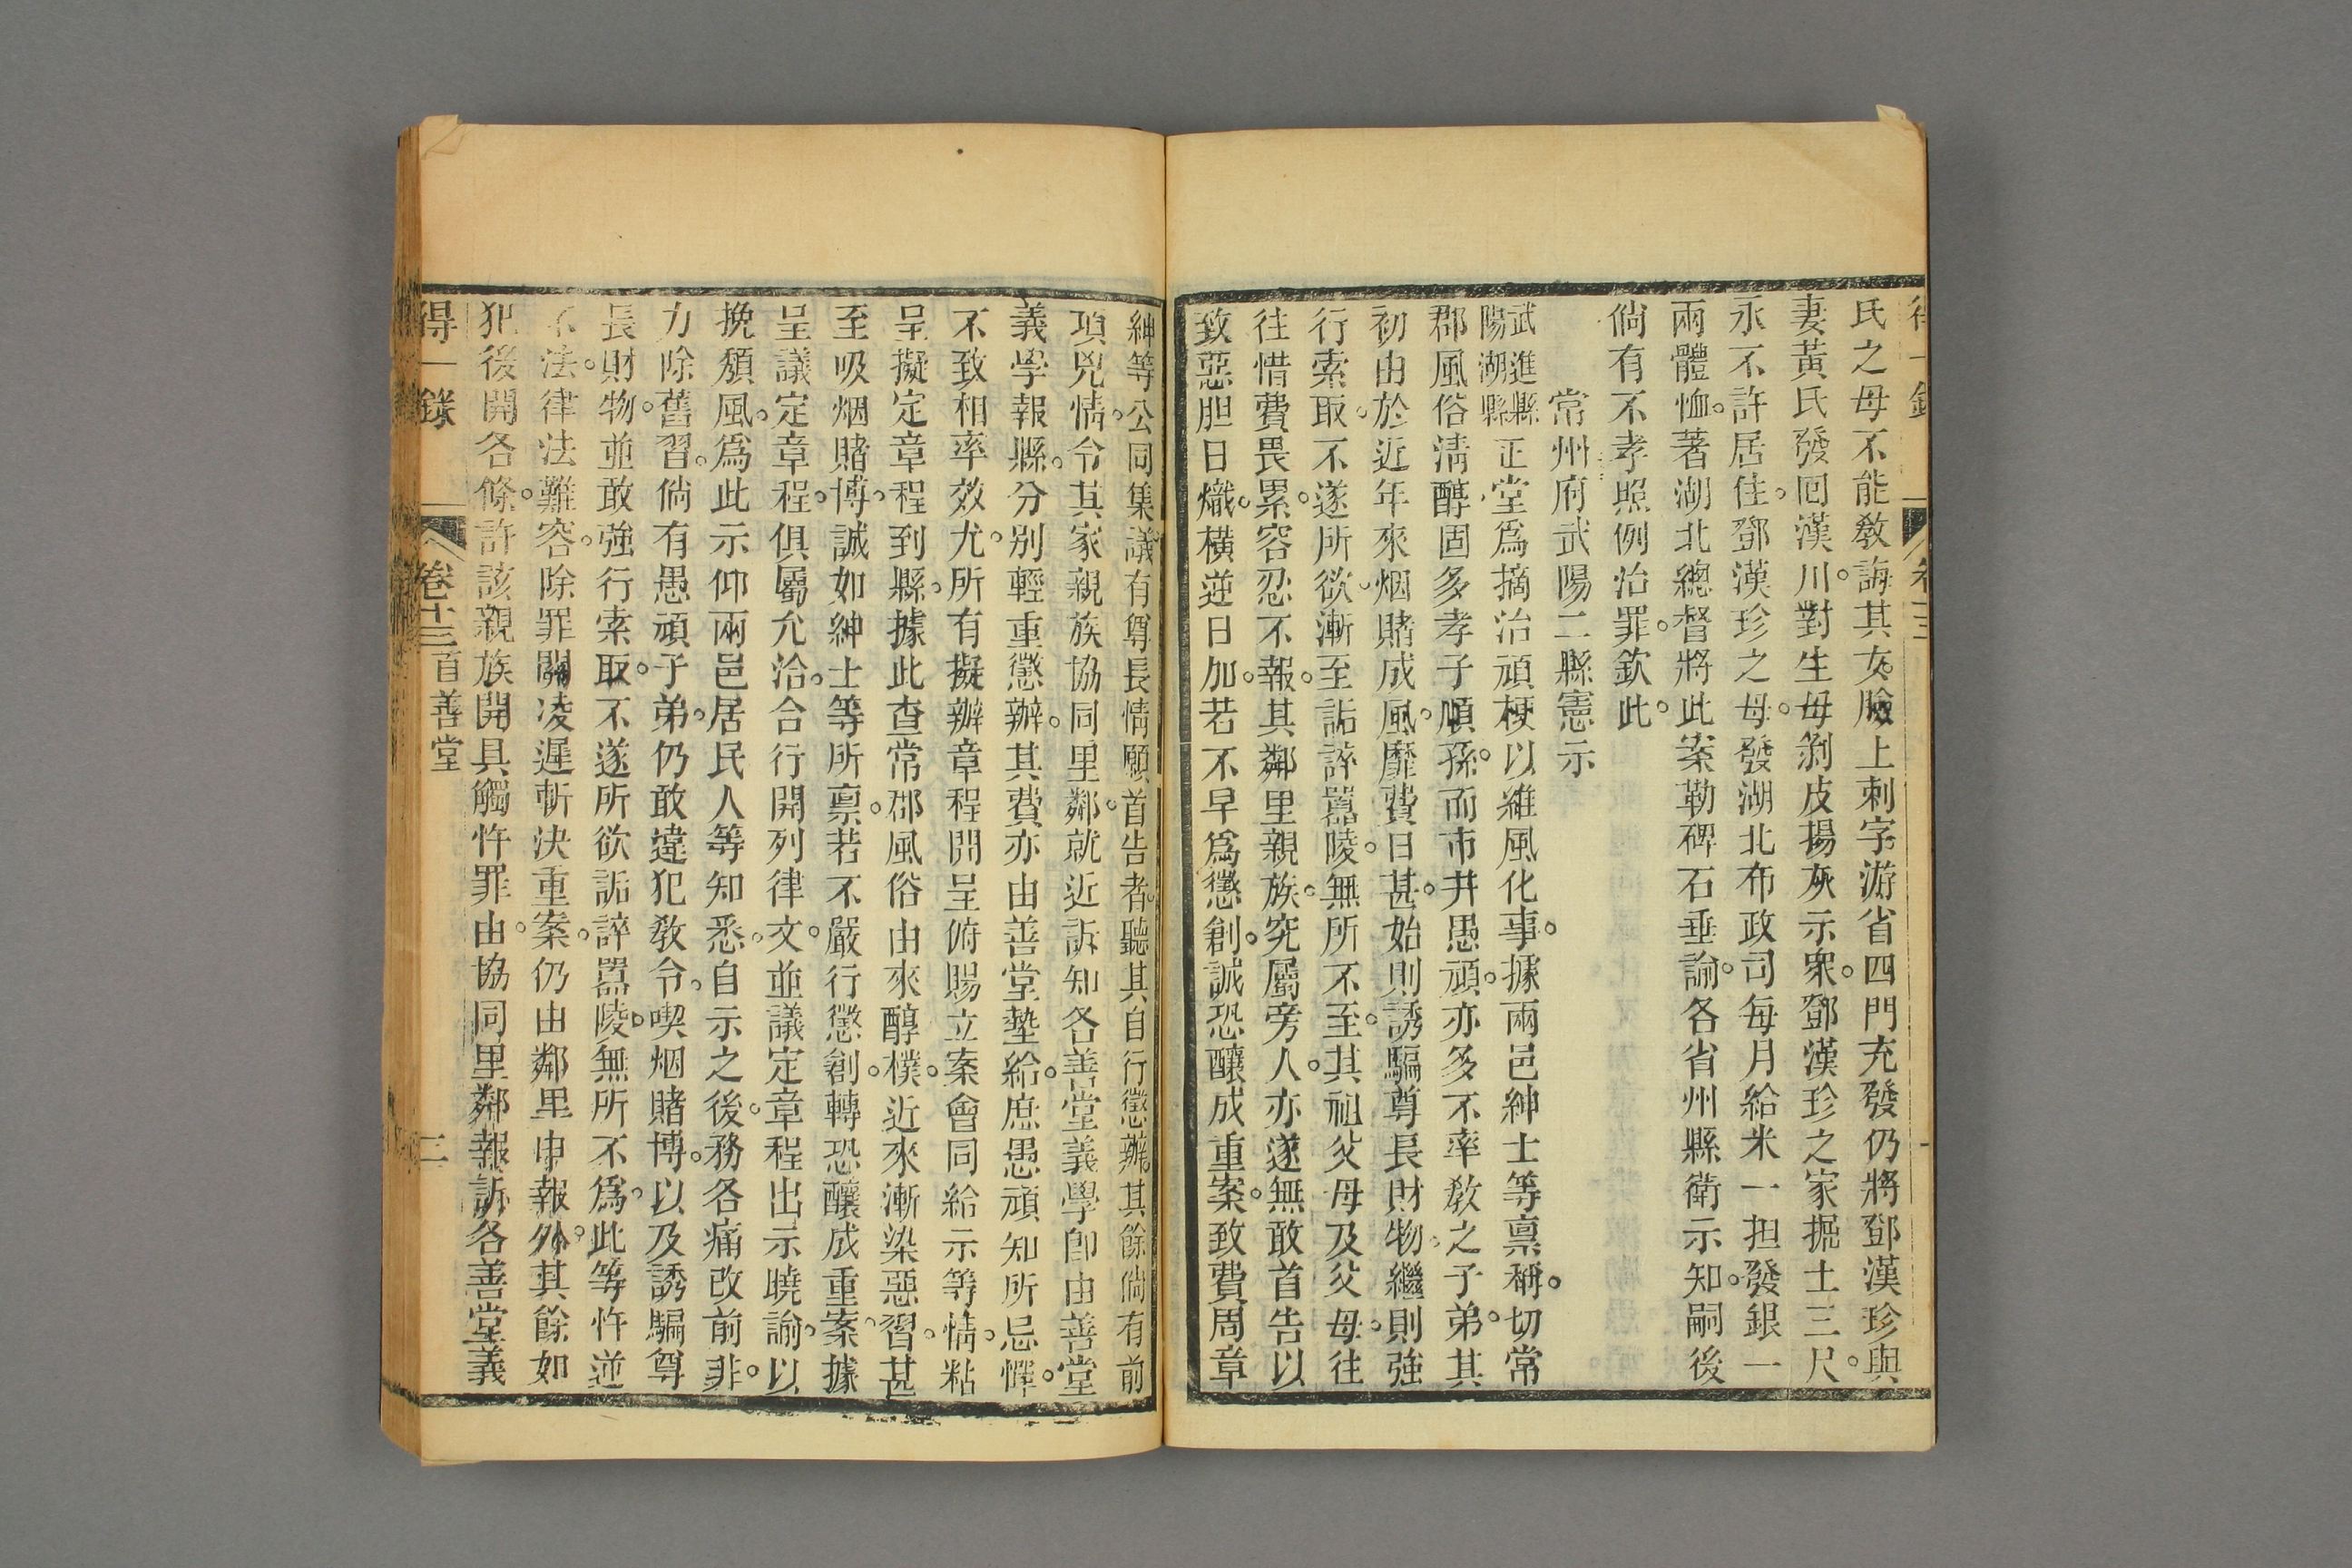 氏之母不能敎誨其女臉上刺字游省四門充發仍將鄧漢珍與
妻黃氏發回漢川。對生母剝皮揚灰示衆。鄧漢珍之家掘土三尺。
永不許居住。鄧漢珍之母。發湖北布政司每月給米一担發銀一
兩體恤。著湖北總督將此案勒碑石垂諭。各省州縣衛示知。嗣後
倘有不孝照例治罪。欽此。
常州府武陽二縣憲示
武進縣陽湖縣正堂爲摘治頑梗以維風化事。據兩邑紳士等禀稱。切常
郡風俗淸醇固多孝子順孫。而市井愚頑。亦多不率敎之子弟。其
初由於近年來烟賭成風。靡費日甚。始則誘騙尊長財物。繼則強
行索取。不遂所欲。漸至詬誶嚣陵。無所不至。其祖父母及父母。往
往惜費畏累。容忍不報。其鄰里親族。究屬旁人。亦遂無敢首告以
致惡胆日熾。橫逆日加。若不早爲懲創。誠恐釀成重案。致費周章
紳等公同集議有尊長情願首告者。聽其自行懲辦其餘倘有前
項兇情。令其家親族協同里鄰。就近訴知各善堂義學卽由善堂
義學報縣。分別輕重懲辦。其費亦由善堂墊給。庶愚頑知所忌憚。
不致相率效尤。所有擬辦章程開呈俯賜立案會同給示等情。粘
呈擬定章程到縣。據此查常郡風俗由來醇樸。近來漸染惡習。甚
至吸烟賭博。誠如紳士等所禀。若不嚴行懲創。轉恐釀成重案。據
呈議定章程。俱屬允洽。合行開列律文。並議定章程出示曉諭。以
挽頹風。爲此示仰兩邑居民人等知悉。自示之後。務各痛改前非。
力除舊習。倘有愚頑子弟。仍敢違犯敎令。喫烟賭博。以及誘騙尊
長財物。並敢強行索取。不遂所欲詬誶嚣陵。無所不爲。此等忤逆
不法。律法難容。除罪關凌遲斬決重案。仍由鄰里申報外。其餘如
犯後開各條。許該親族開具觸忤罪由。協同里鄰報訴各善堂義
得一錄
卷十三
首善堂
二